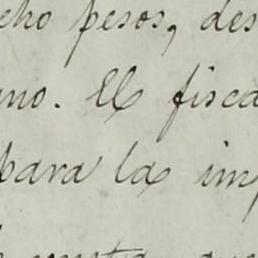 cho pesos, des
no. El fisca
para la imp